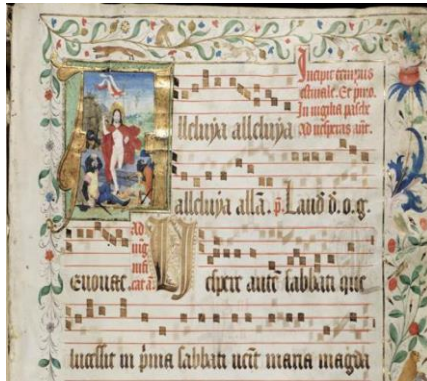 Incipit tempus
estiuale. Et primo.
In vigilia pasche
Ad vesperas ant.
Alleluya alleluya
alleluya allã. p̃. Laud d. o. g.
ad
mag
nifi
cat añ
Euouae. Vespere autē sabbati que
lucessit in p̃ma sabbati uēit maria magda